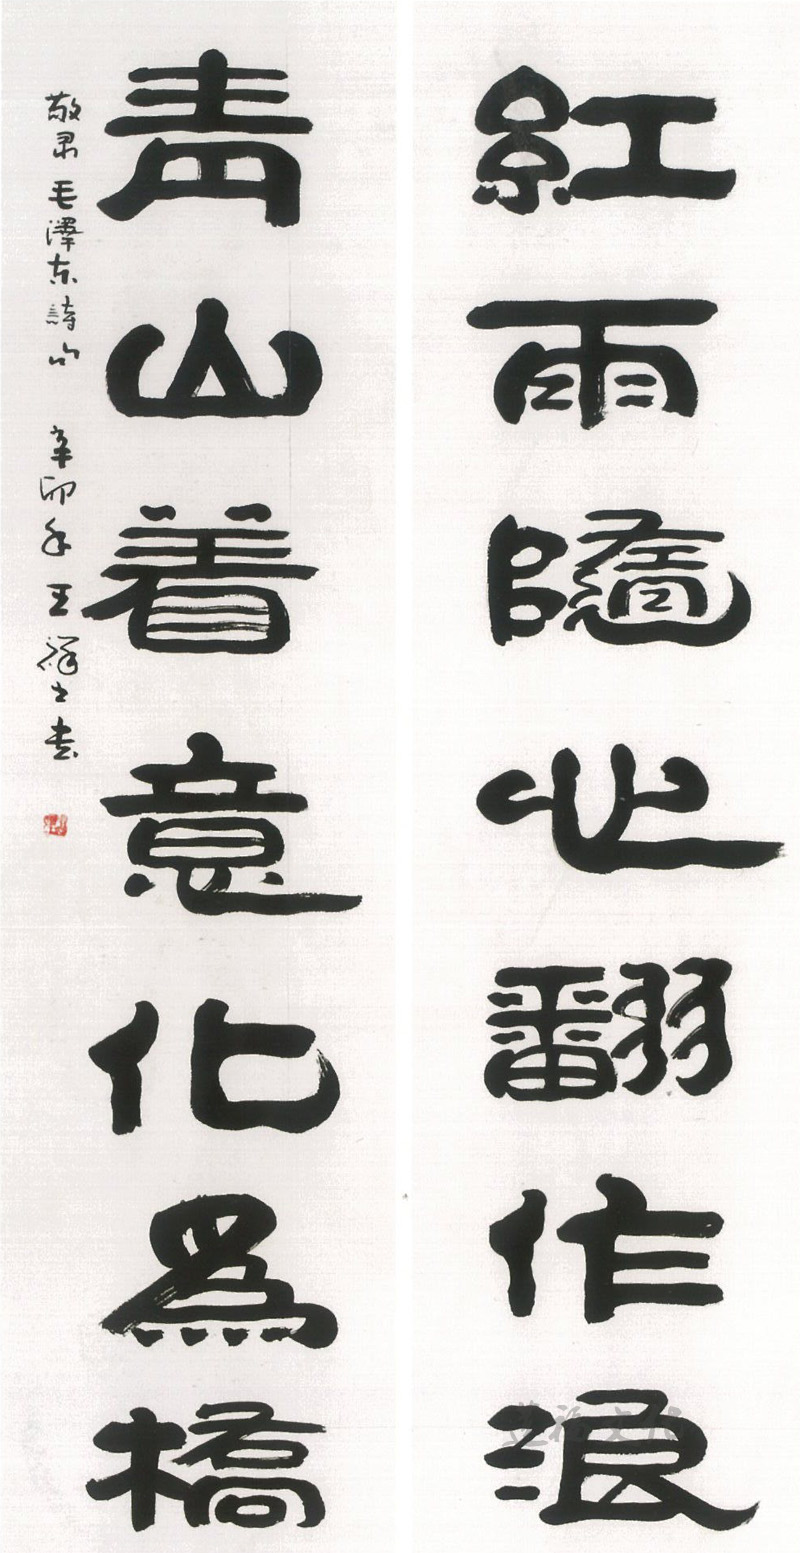 紅雨隨心翻作浪
青山着意化爲橋
敬录毛澤东詩句 辛卯年 王祥之書